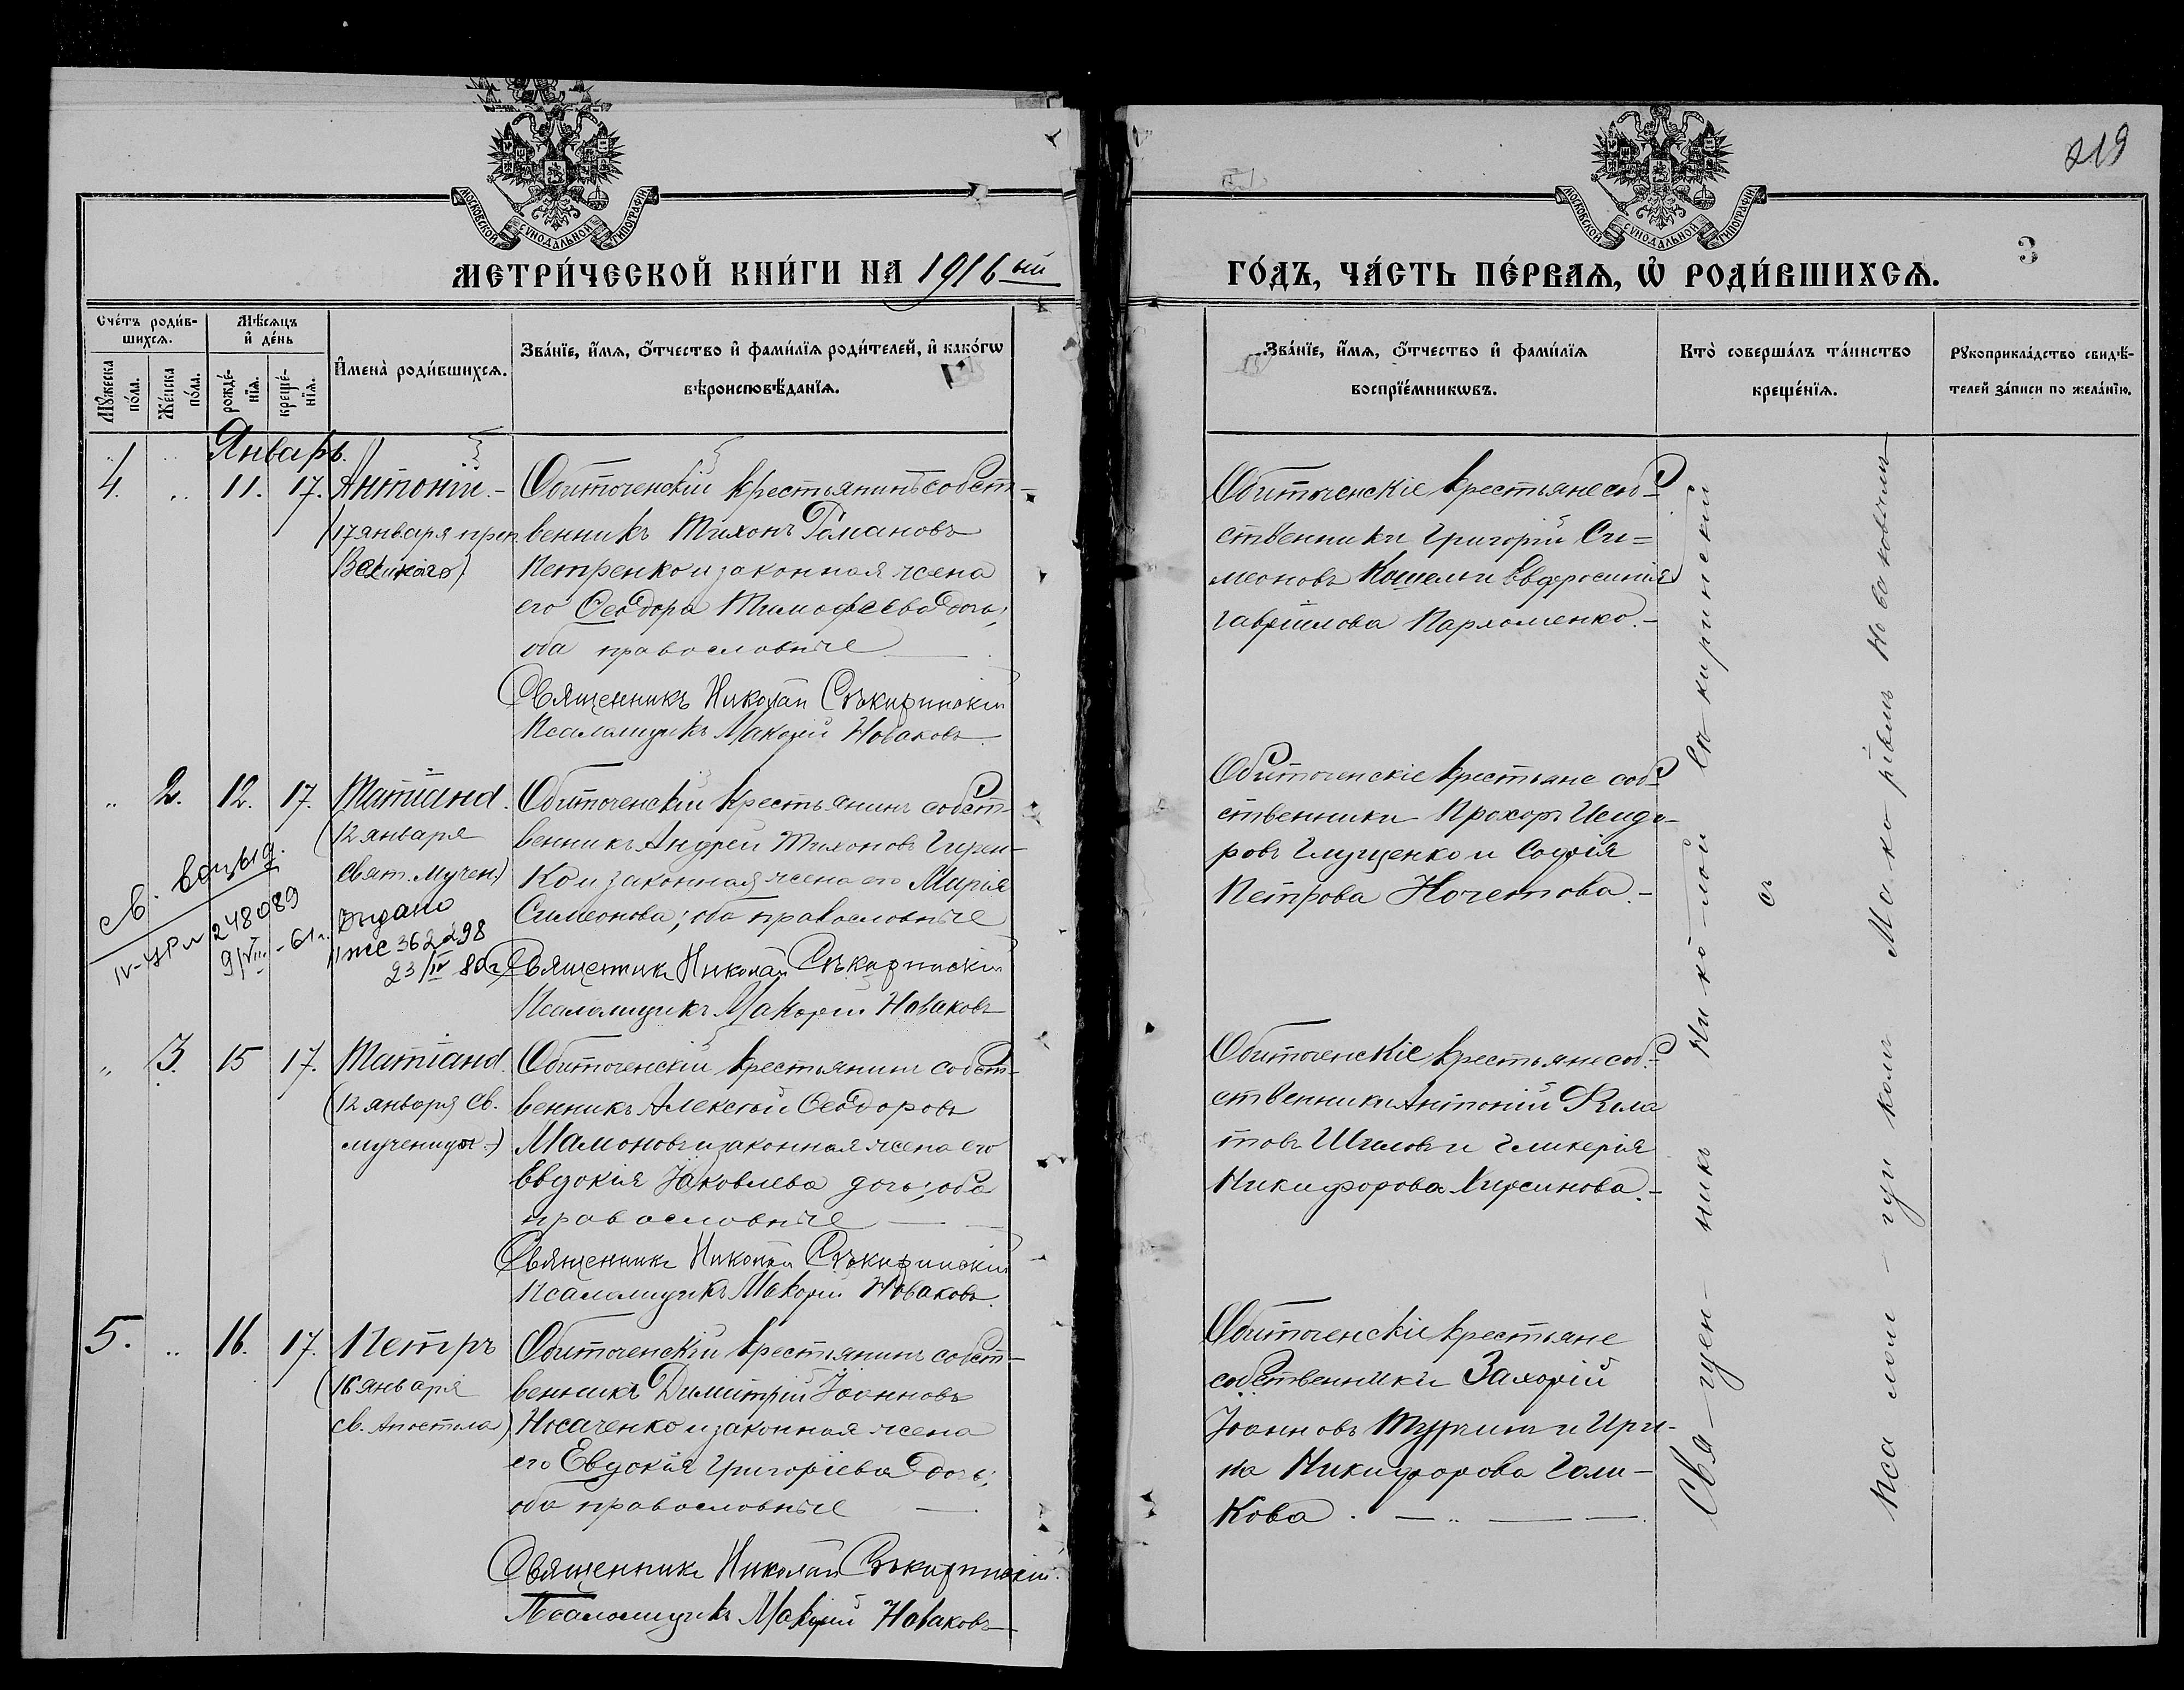 219
3
МОСКОВСКОЙ СѴНОДАЛЬНОЙ ТИПОГРАФІИ
МОСКОВСКОЙ СѴНОДАЛЬНОЙ ТИПОГРАФІИ
МЕТРИ́ЧЕСКОЙ КНИ́ГИ НА 1916 ый
ГО́ДЪ, ЧА́СТЬ ПЕ́РВАѦ, Ѡ҆ РОДИ́ВШИХСѦ.
Сче́тъ роди́в-
шихсѧ.
Мꙋ́жеска по́ла.
Же́нска по́ла.
Мѣ́сѧцъ
и҆ де́нь
рожде́-
нїѧ.
креще́-
нїѧ.
И҆мена̀ роди́вшихсѧ.
Зва́нїе, и҆́мѧ, ѻ҆́тчество и҆ фами́лїѧ роди́телей, и҆ како́гѡ
вѣроисповѣ́данїѧ.
Зва́нїе, и҆́мѧ, ѻ҆́тчество и҆ фами́лїѧ
воспрїе́мникѡвъ.
Кто̀ соверша́лъ та́инство
креще́нїѧ.
Рꙋкоприкла́дство свидѣ́-
телей за́писи по жела́нїю.
Январь.
4. 11. 17. Антоній.
(17 января преп.
Великаго).
Обиточенскій крестьянинъ собст-
венникъ Тихонъ Романовъ
Петренко и законная жена
его Ѳеодора Тимофеева дочь;
оба православные
Священникъ Николай Сѣкиринскій
Псаломщикъ Макарій Новаковъ
Обиточенскіе крестьяне соб-
ственники Григорій Си=
меоновъ Кошель и Евфросинія
Гавріилова Пархоменко.-
2. 12. 17. Татіана.
(12 января
свят. мучен.)
Выдано
362298
23/IV 80г
248089
9/VIII - 61г.
Обиточенскій крестьянинъ собст-
венникъ Андрей Тихоновъ Гирен-
ко и законная жена его Марія
Симеонова; оба православные
Священникъ Николай Сѣкиринскій
Псаломщикъ Макарій Новаковъ
Обиточенскіе крестьяне соб-
ственники Прохоръ Исидо-
ровъ Глущенко и Софія
Петрова Кочетова.-
3. 15 17. Татіана.
(12 января св.
мученицы.-)
Обиточенскій крестьянинъ собст-
венникъ Алексѣй Ѳеодоровъ
Мамоновъ и законная жена его
Евдокія Іаковлева дочь; оба
православные
Священникъ Николай Сѣкиринскій
Псаломщикъ Макарій Новаковъ.
Обиточенскіе крестьяне соб-
ственники Антоній Фила
товъ Шиловъ и Гликерія
Никифорова Кирсинова.-
5. 16. 17. Петръ
(16 января
св. Апостола)
Обиточенскій крестьянинъ собст-
венникъ Димитрій Іоанновъ
Носаченко и законная жена
его Евдокія Григоріева дочь;
оба православные
Священникъ Николай Сѣкиринскій.
Псаломщикъ Макарій Новаковъ
Обиточенскіе крестьяне
собственники Захарій
Іоанновъ и Ири-
на Никифорова Голи-
кова.
Свя-щен-никъ Нико-лай Сѣ-киринскій
съ
Пса лом-щи комъ Ма-ка ріемъ Новаковымъ